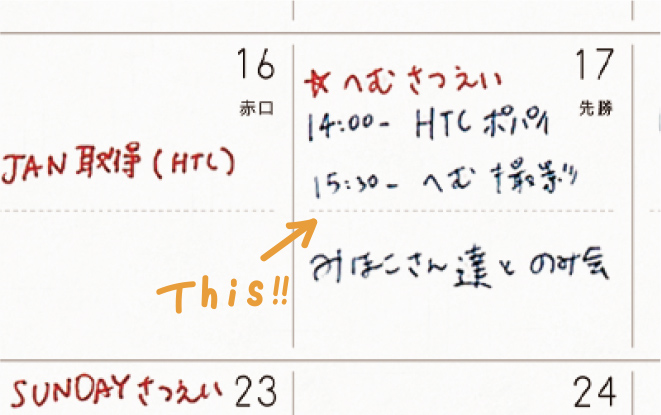 16
赤口
JAN 取得(HTC)
17
先勝
☆へむさつえい
14:00- HTC ポパイ
15:30- へむ 撮影
This!!
みほこさん達とのみ会
SUNDAYさつえい 23
24